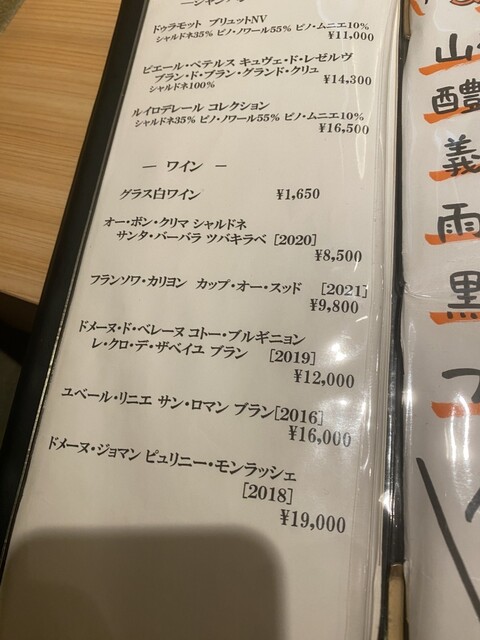 ドゥラモット ブリュットNV
シャルドネ35% ピノ・ノワール55% ピノ・ムニエ10%
¥11,000
ピエール・ペテルス キュヴェ・ド・レゼルヴ
ブラン・ド・ブラン・グランド・クリュ
シャルドネ100%
¥14,300
ルイロデレール コレクション
シャルドネ35% ピノ・ノワール55% ピノ・ムニエ10%
¥16,500
― ワイン ―
グラス白ワイン ¥1,650
オー・ボン・クリマ シャルドネ
サンタ・バーバラ ツバキラベ [2020]
¥8,500
フランソワ・カリヨン カップ・オー・スッド [2021]
¥9,800
ドメーヌ・ド・ベレーヌ コトー・ブルギニョン
レ・クロ・デ・ザベイユ ブラン [2019]
¥12,000
ユベール・リニエ サン・ロマン ブラン[2016]
¥16,000
ドメーヌ・ジョマン ピュリニー・モンラッシェ
[2018]
¥19,000
山
醴
義
雨
黒